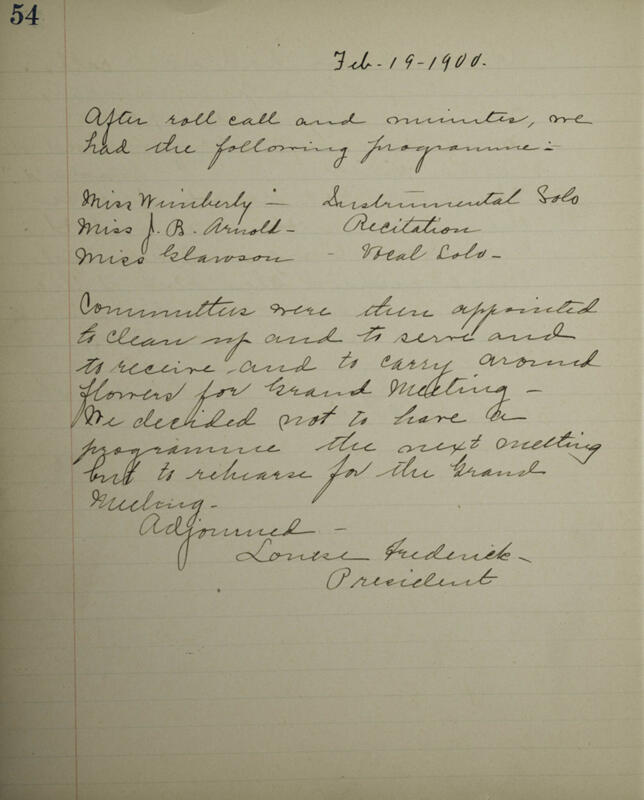 54
Feb-19-1900.
After roll call and minutes, we
had the following programme:-
Miss Wimberly - Instrumental Solo
Miss J. B. Arnold - Recitation
Miss Glawson - Vocal Solo -
Committees were then appointed
to clean up and to serve and
to receive and to carry around
flowers for Grand Meeting -
We decided not to have a
programme the next meeting
but to rehearse for the Grand
Meeting -
Adjourned -
Louise Frederick -
President